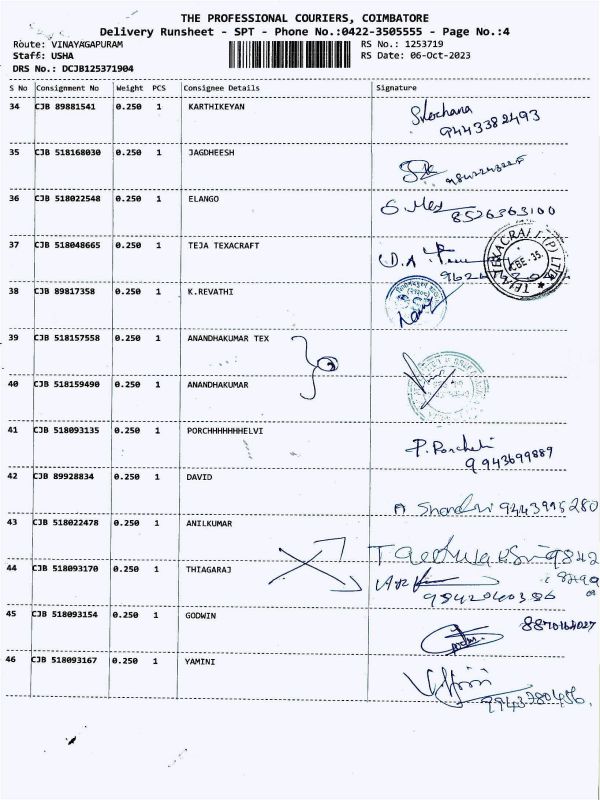 THE PROFESSIONAL COURIERS, COIMBATORE
Delivery Runsheet - SPT - Phone No.:0422-3505555 - Page No.:4
Route: VINAYAGAPURAM RS No.: 1253719
Staff: USHA RS Date: 06-Oct-2023
DRS No.: DCJB125371904
S No Consignment No Weight PCS Consignee Details Signature
34 CJB 89881541 0.250 1 KARTHIKEYAN
9443382493
35 CJB 518168030 0.250 1 JAGDHEESH
36 CJB 518022548 0.250 1 ELANGO
8526363100
37 CJB 518048665 0.250 1 TEJA TEXACRAFT
CBE-35.
38 CJB 89817358 0.250 1 K.REVATHI
39 CJB 518157558 0.250 1 ANANDHAKUMAR TEX
40 CJB 518159490 0.250 1 ANANDHAKUMAR
41 CJB 518093135 0.250 1 PORCHHHHHHHELVI
9943699889
42 CJB 89928834 0.250 1 DAVID
9443995280
43 CJB 518022478 0.250 1 ANILKUMAR
9842
44 CJB 518093170 0.250 1 THIAGARAJ
45 CJB 518093154 0.250 1 GODWIN
8870164027
46 CJB 518093167 0.250 1 YAMINI
9943780456.